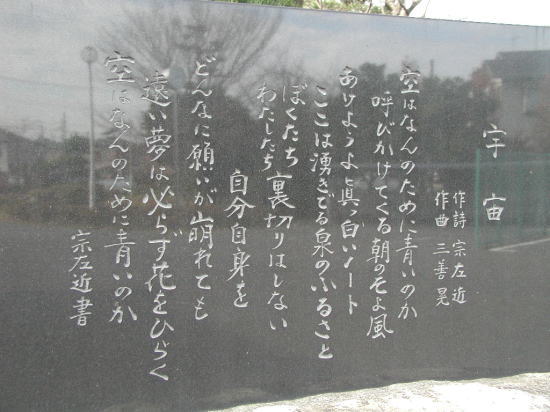 宇宙
作詩 宗左近
作曲 三善晃
空はなんのために青いのか
呼びかけてくる朝のそよ風
あけようよ真っ白いノート
ここは湧きでる泉のふるさと
ぼくたち
わたしたち
裏切りはしない
自分自身を
どんなに願いが崩れても
遠い夢は必らず花をひらく
空はなんのために青いのか
宗左近書